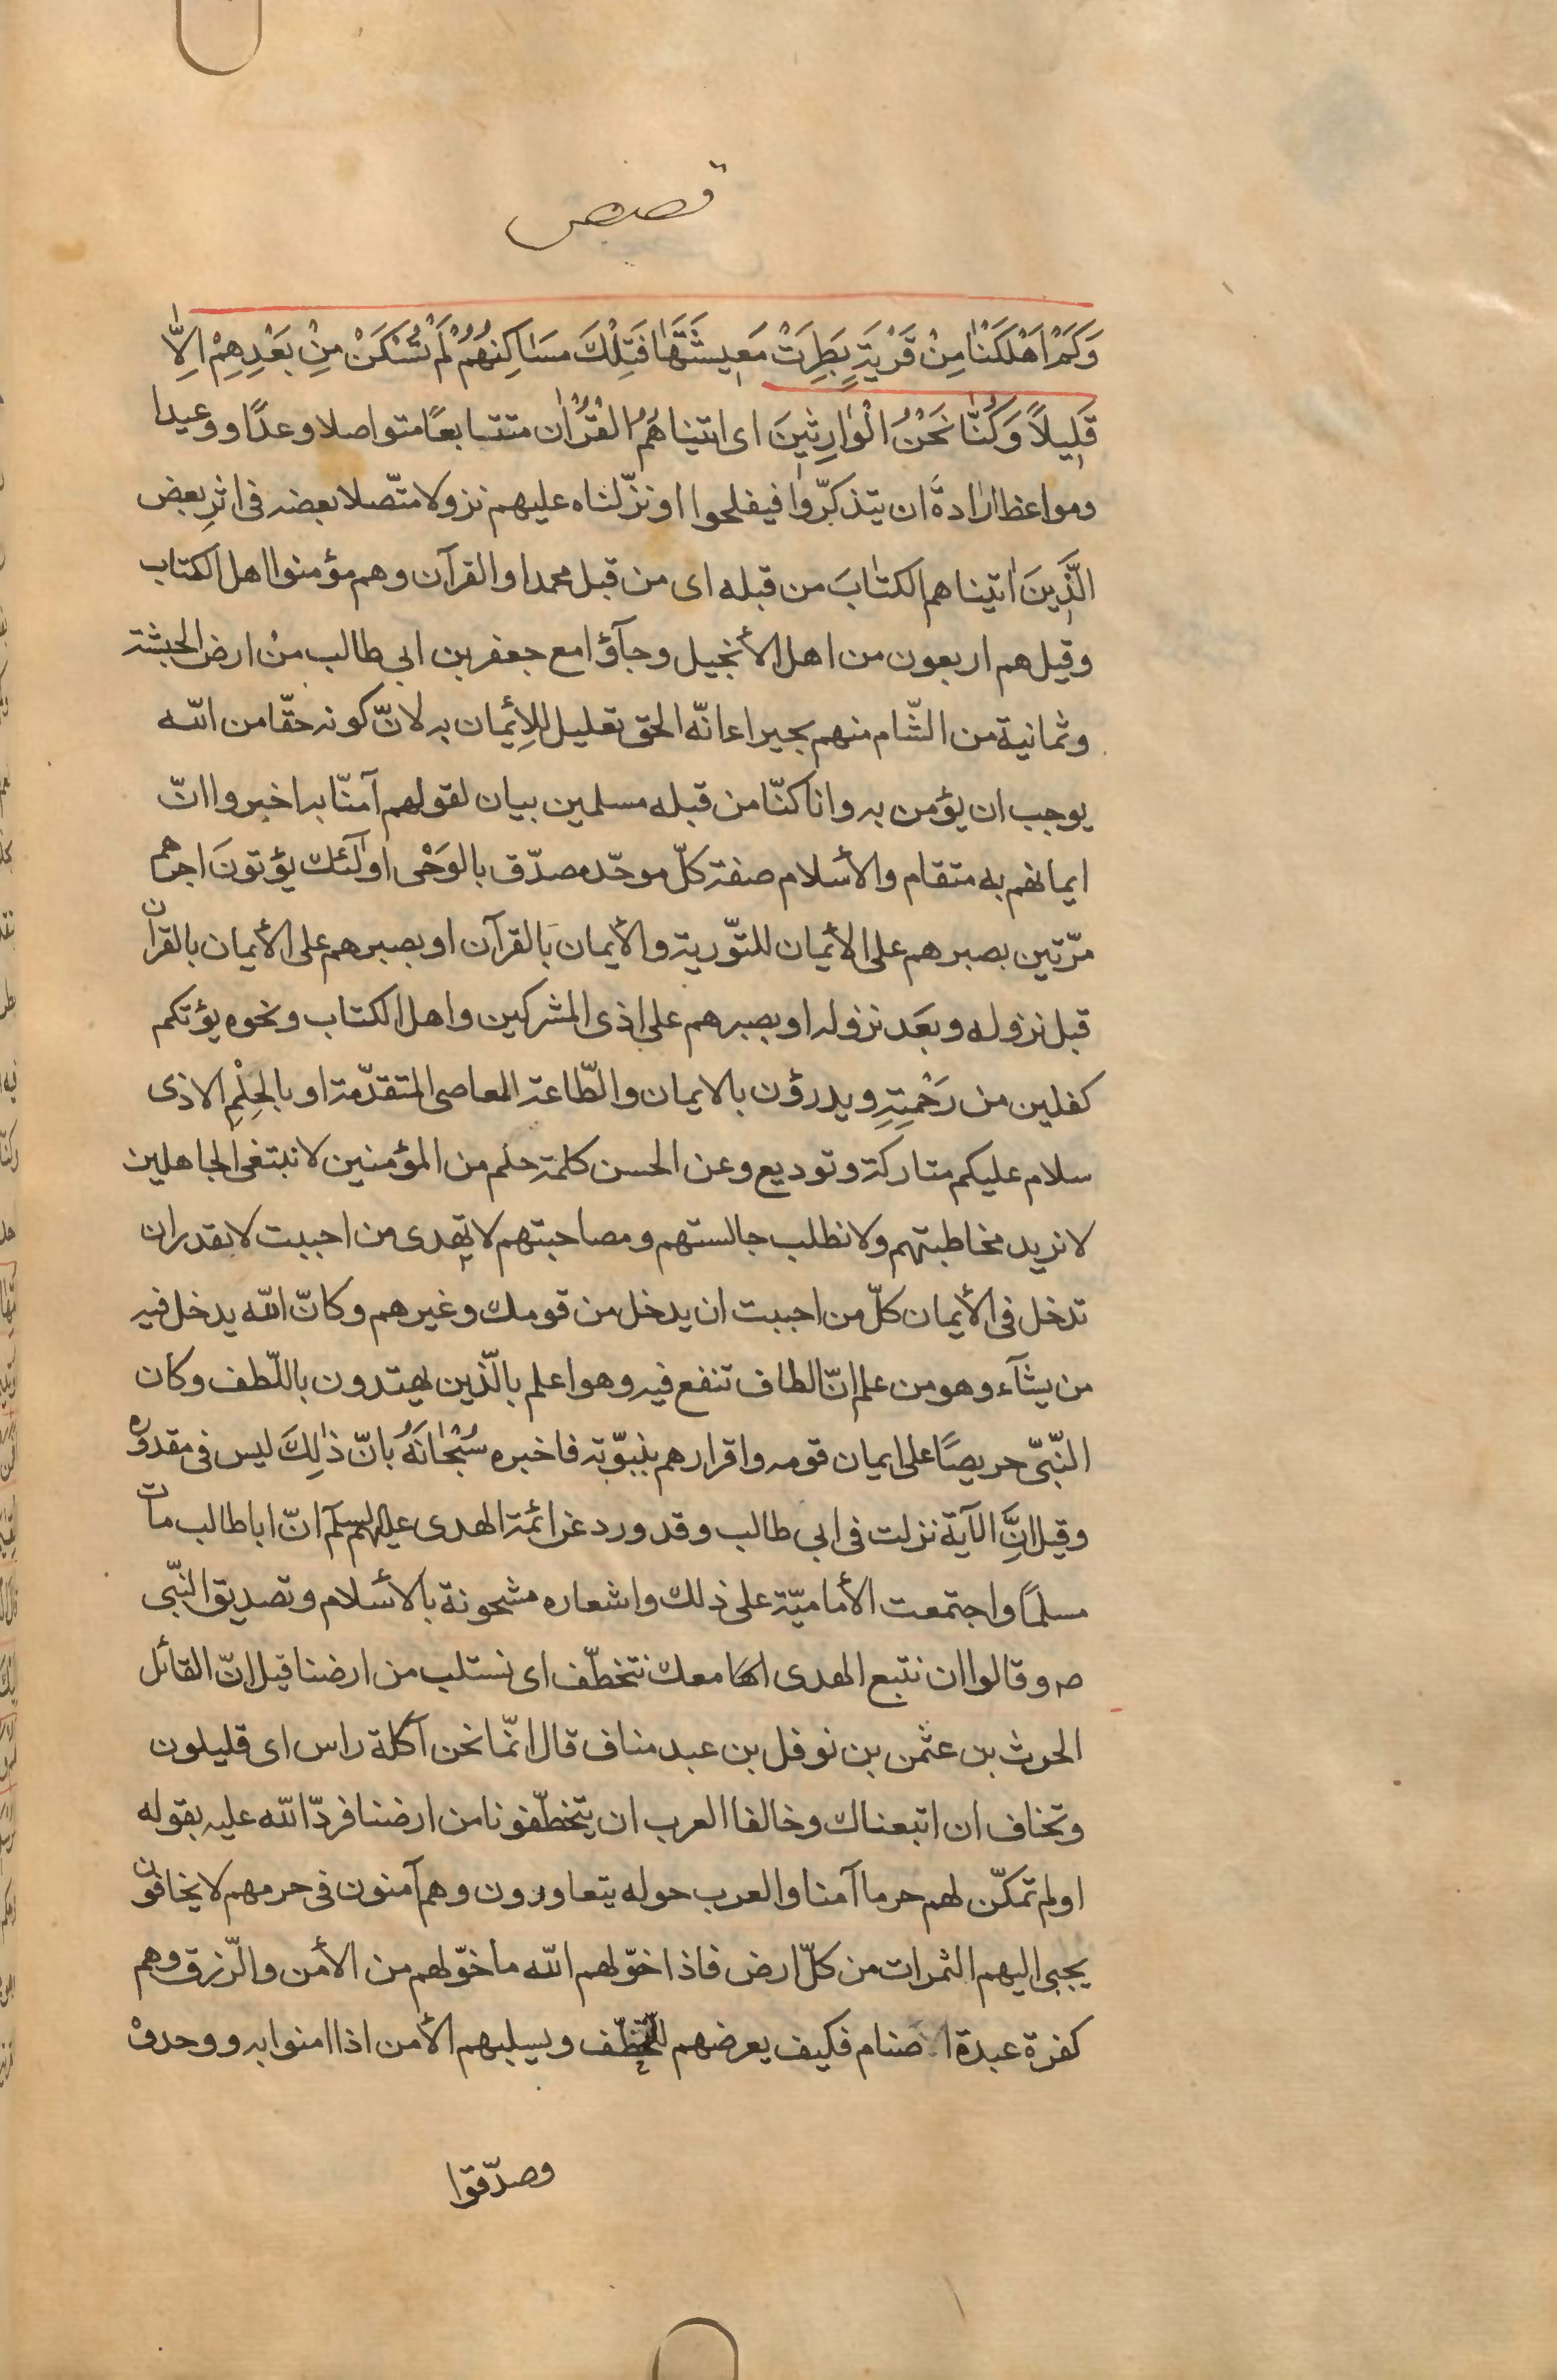 قصص
وَكَمْ اَهْلَكْنٰا مِنْ قَرْيَةٍ بَطِرَتْ مَعٖيشَتَهٰا فَتِلْكَ مَسٰاكِنُهُمْ لَمْ تُسْكَنْ مِنْ بَعْدِهِمْ اِلاّٰ
قَلٖيلاً وَكُنّٰا نَحْنُ الْوٰارِثٖينَ اى اتيناهُمُ القُرْاٰن متتابعًا متواصلا وعدًا ووعيدا
ومواعظ ارٰادةَ ان يتذكّروا فيفلحوا او نزّلناه عليهم نزولا متّصلا بعضه فى اثرِ بعض
الَّذٖينَ اٰتيناهم الكتٰابَ من قبله اى من قبل محمد او القرآن وهم مؤمنوا اهل الكتاب
وقيل هم اربعون من اهل الأنجيل وجآؤا مع جعفر بن ابى طالب منْ ارض الحبشة
وثمانية من الشّام منهم بحيرا ء انّه الحق تعليل للِأيمان به لانّ كونه حقّا من اللّه
يوجب ان يؤمن به وانا كنّا من قبله مسلمين بيان لقولهم آمنّا به اخبروا انّ
ايمانهم به متقام والأسلام صفة كلّ موحّد مصدّق بالوَحْى اولٰئك يؤتونَ اجرهم
مرّتين بصبرهم على الأيمان للتّورية والأيمان بالقرآن او بصبرهم على الأيمان بالقرآن
قبل نزوله وبعَد نزوله او بصبرهم على اذى المشركين واهل الكتاب ونحوه يؤتكم
كفلين من رَحْمتِهِ ويدرؤن بالايمان والطّاعة المعاصى المتقدّمة او بالحِلْمِ الاذى
سلام عليكم متاركة وتوديع وعن الحسن كلمة حلم من المؤمنين لا نبتغى الجاهلين
لا نريد مخاطبتهم ولا نطلب جالستهم ومصاحبتهم لا تهدى من احببت لا تقدر ان
تدخل فى الأيمان كلّ من احببت ان يدخل من قومك وغيرهم وكانّ اللّه يدخل فيه
من يشآء وهو من علم انّ الطاف تنفع فيه وهو اعلم بالّذين يهتدون باللّطف وكان
النّبىّ حريصًا على ايمان قومه واقرارهم بنبوّته فاخبره سُبْحٰانَهُ بانّ ذٰلِكَ ليس فى مقدوره
وقيل انَّ الآية نزلت فى ابى طالب وقد ورد عن ائمة الهدى عليهم السلم انّ ابا طالب مات
مسلمًا واجتمعت الأماميّة على ذلك واشعاره مشحونة بالأسلام وتصديق النبّى
ص وقالوا ان نتبع الهدى معك نتخطّف اى نستلب من ارضنا قيل انّ القائل
الحرث بن عثمن بن نوفل بن عبد مناف قال انّما نحن آكلة راس اى قليلون
وتخاف ان اتبعناك وخالفا العرب ان يتخطّفونا من ارضنا فردّ اللّه عليه بقوله
اولم تمكّن لهم حرما آمنا والعرب حوله يتعاورون وهم آمنون فى حرمهم لا يخافون
يجبى اليهم الثمرات من كلّ ارض فاذا خوّلهم اللّه ما خوّلهم من الأمن والّرزق وهم
كفرة عبدة الأصنام فكيف يعرضهم للتخطّف ويسلبهم الأمن اذا امنوا به ووحدوْ
وصدّقوا